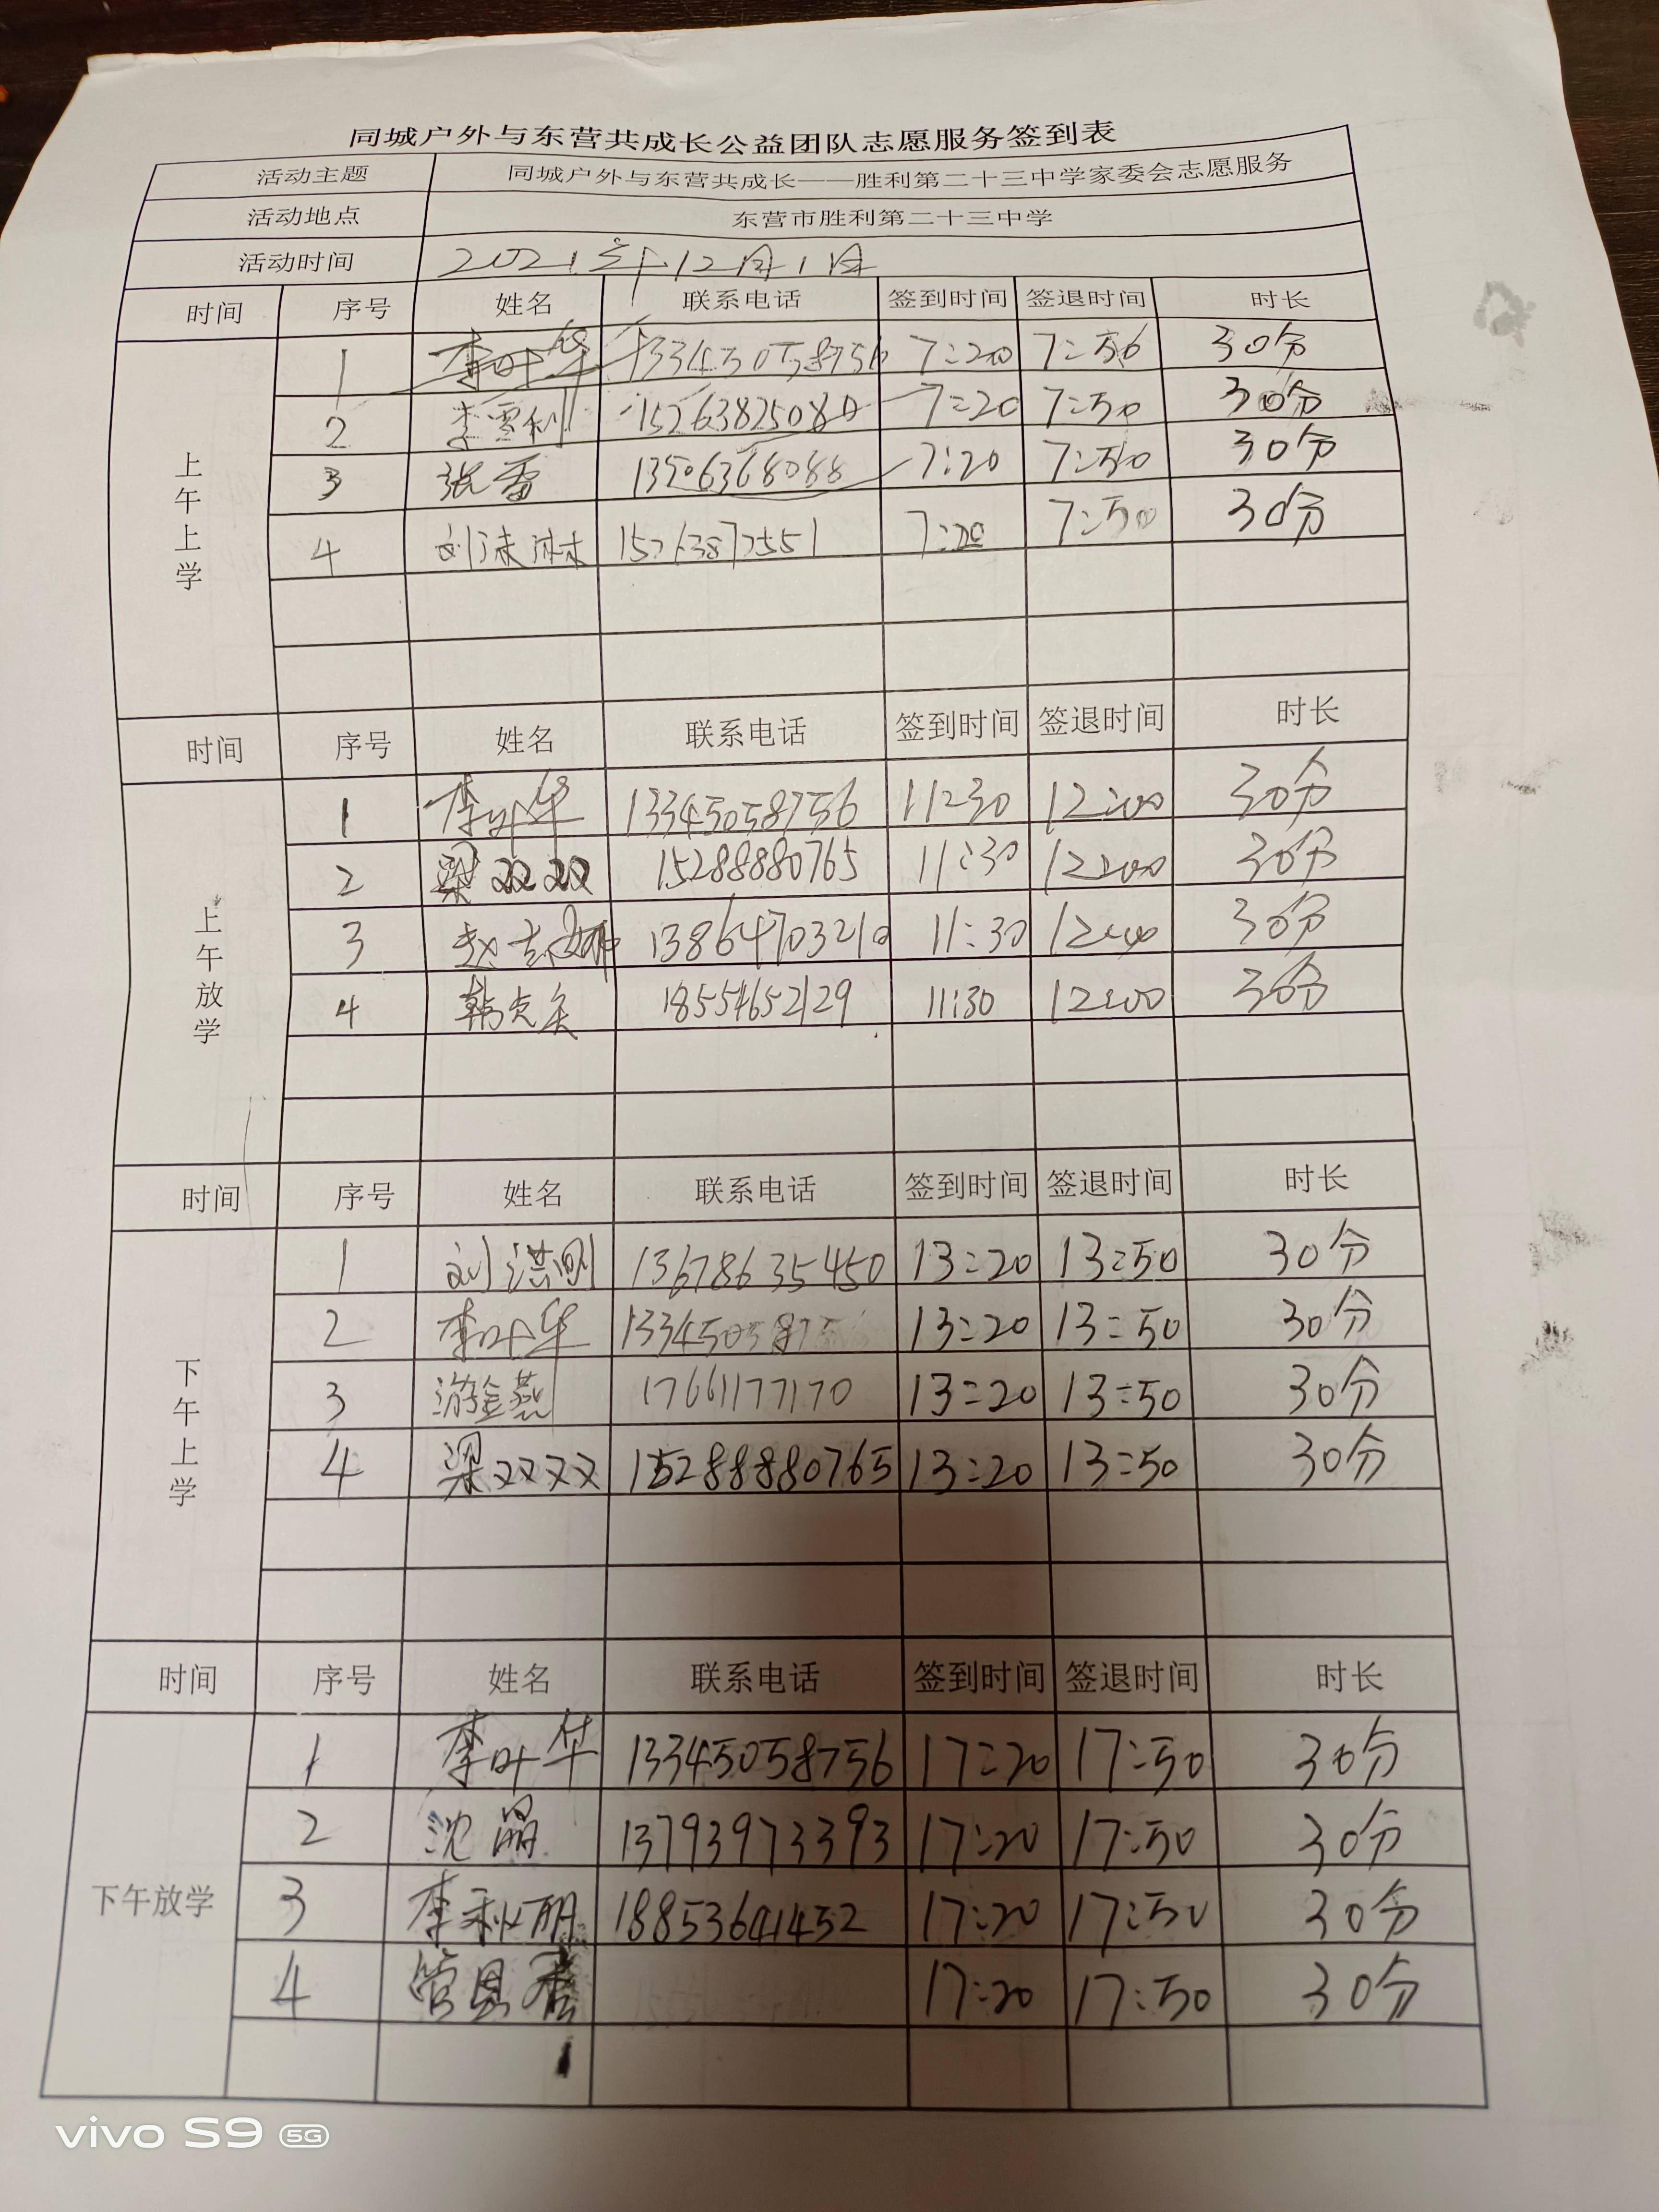 同城户外与东营共成长公益团队志愿服务签到表
活动主题 同城户外与东营共成长——胜利第二十三中学家委会志愿服务
活动地点 东营市胜利第二十三中学
活动时间 2021.年.12月1日
时间 序号 姓名 联系电话 签到时间 签退时间 时长
上午上学
1 李叶华 13345058756 7:20 7:50 30分
2 李雪利 15263825080 7:20 7:50 30分
3 张雷 13506368088 7:20 7:50 30分
4 刘沫淋 15263872551 7:20 7:50 30分
时间 序号 姓名 联系电话 签到时间 签退时间 时长
上午放学
1 李叶华 13345058756 11:30 12:00 30分
2 梁双双 15288880765 11:30 12:00 30分
3 赵志娜 13864703210 11:30 12:00 30分
4 韩 18554652129 11:30 12:00 30分
时间 序号 姓名 联系电话 签到时间 签退时间 时长
下午上学
1 刘洪刚 13678635450 13:20 13:50 30分
2 李叶华 1334505875 13:20 13:50 30分
3 游金燕 17661177170 13:20 13:50 30分
4 梁双双 15288880765 13:20 13:50 30分
时间 序号 姓名 联系电话 签到时间 签退时间 时长
下午放学
1 李叶华 13345058756 17:20 17:50 30分
2 沈晶 13793973393 17:20 17:50 30分
3 李秋丽 18853641452 17:20 17:50 30分
4 管 17:20 17:50 30分
vivo S9 5G